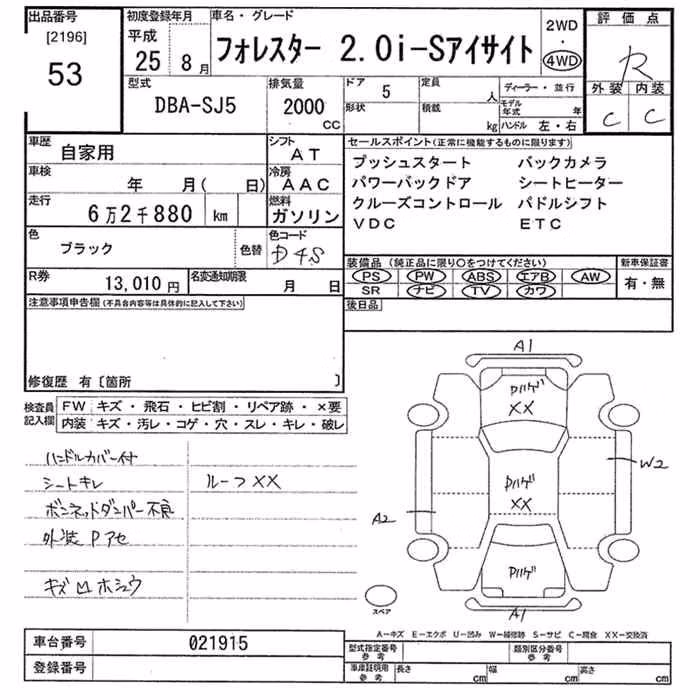 出品番号
[2196]
53
初度登録年月
平成
25年 8月
車名・グレード
フォレスター 2.0i-Sアイサイト
2WD
・
4WD
評価点
R
外装 内装
C C
型式
DBA-SJ5
排気量
2000
CC
ドア 5
形状
定員 人
積載 kg
ディーラー・並行
モデル年式 年
ハンドル 左・右
車歴
自家用
シフト
AT
車検
年 月( 日)
冷房
AAC
走行
6万2千880 km
燃料
ガソリン
色
ブラック
色替
色コード
D4S
R券
13,010円
名変通知期限
月 日
セールスポイント(正常に機能するものに限ります)
プッシュスタート バックカメラ
パワーバックドア シートヒーター
クルーズコントロール パドルシフト
VDC ETC
装備品(純正品に限り○をつけてください)
PS PW ABS エアB AW
SR ナビ TV カワ
新車保証書
有・無
後日品
注意事項申告欄(不具合内容等は具体的に記入して下さい)
修復歴 有〔箇所 〕
検査員記入欄
FW キズ・飛石・ヒビ割・リペア跡・×要
内装 キズ・汚レ・コゲ・穴・スレ・キレ・破レ
ハンドルカバー付
シートキレ
ルーフXX
ボンネットダンパー不良
外装Pアセ
キズ凹ホシュウ
A1
Pハゲ
XX
W2
Pハゲ
XX
A2
Pハゲ
スペア
A1
A-キズ E-エクボ U-凹み W-補修跡 S-サビ C-腐食 XX-交換済
車台番号 021915
登録番号
型式指定番号
参考
類別区分番号
参考
車庫証明用
参考
長さ cm
幅 cm
高さ cm